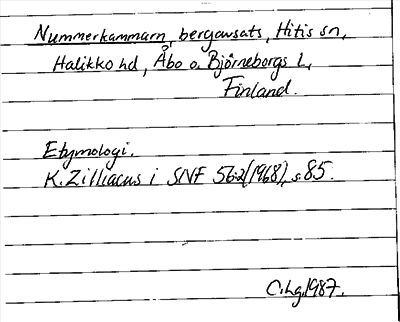 Nummerkammarn, bergavsats, Hitis sn,
Halikko hd, Åbo o. Björneborgs l,
Finland.
Etymologi.
K. Zilliacus i SNF 56:2(1968), s.85.
C.hg.1987.